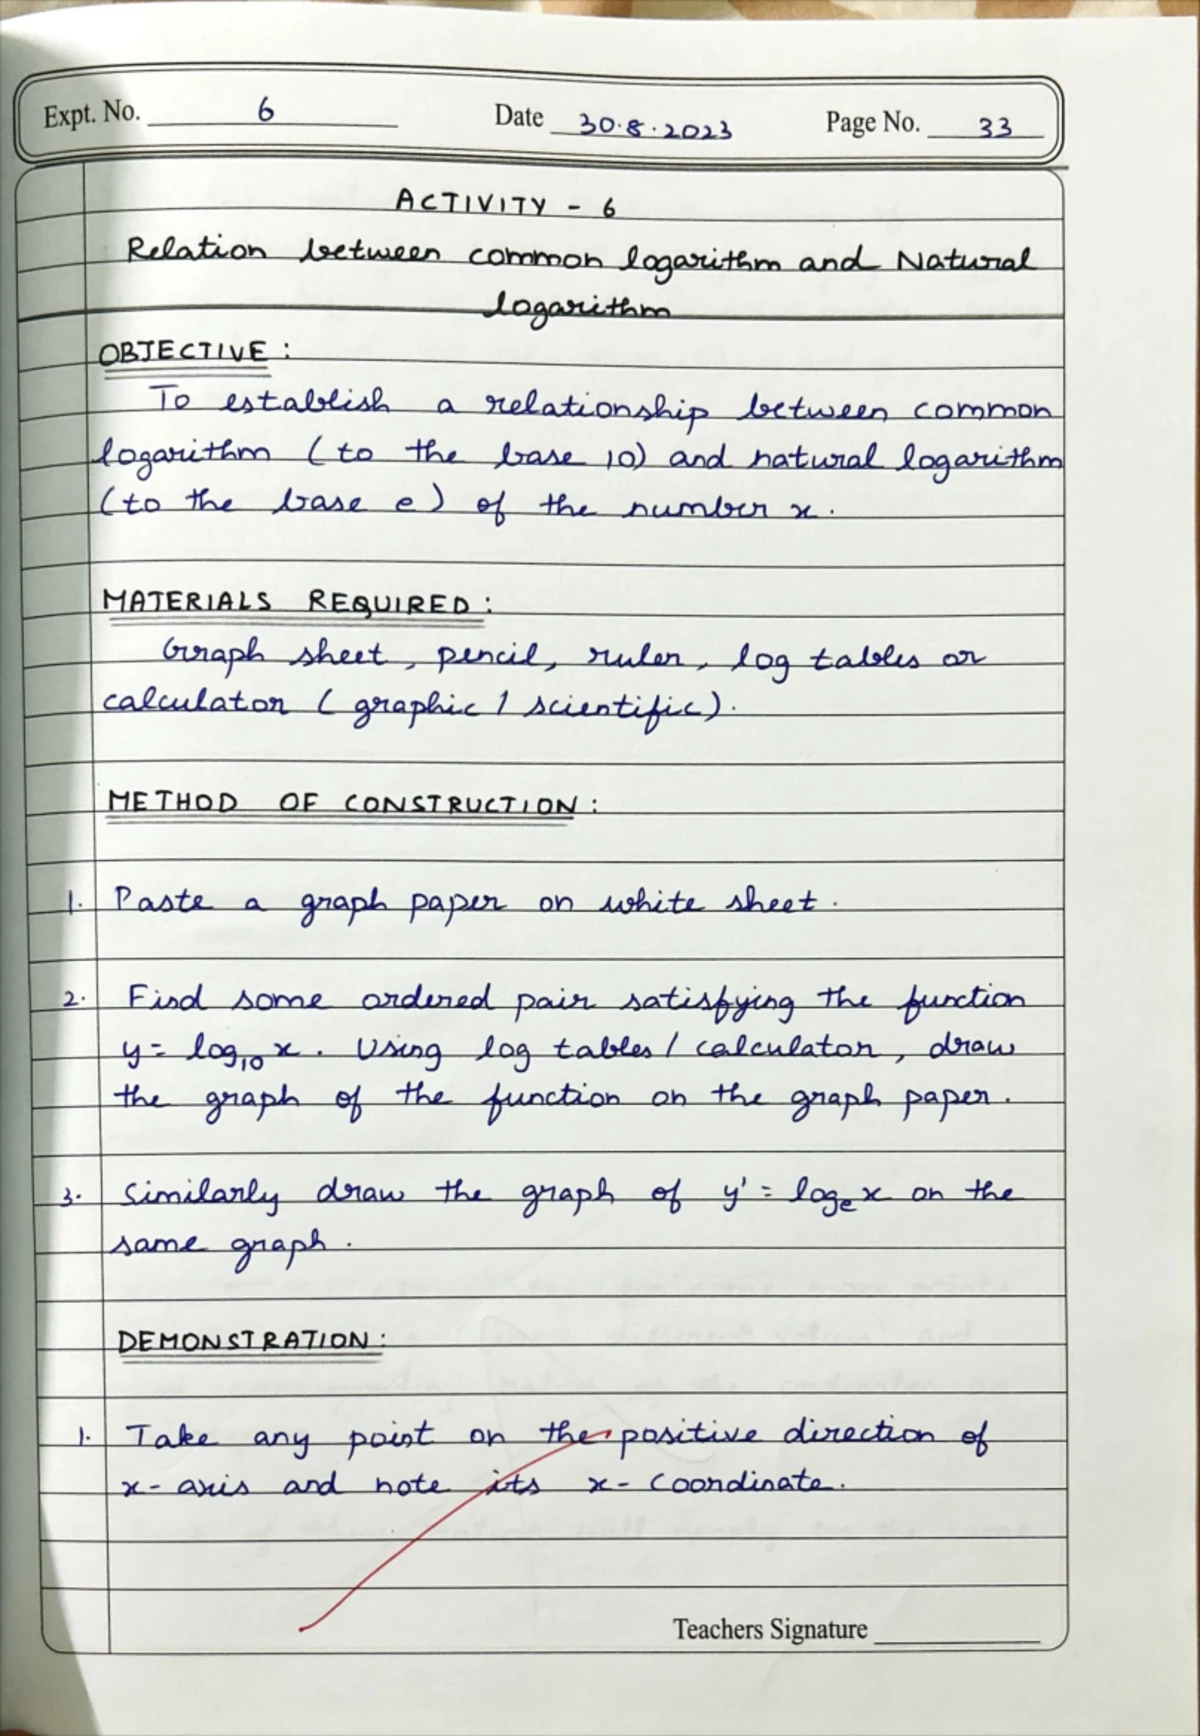 Expt. No. 6 Date 30.8.2023 Page No. 33
ACTIVITY - 6
Relation between common logarithm and Natural
logarithm
OBJECTIVE :
To establish a relationship between common
logarithm (to the base 10) and natural logarithm
(to the base e) of the number x.
MATERIALS REQUIRED :
Graph sheet, pencil, ruler, log tables or
calculator (graphic / scientific).
METHOD OF CONSTRUCTION :
1. Paste a graph paper on white sheet.
2. Find some ordered pair satisfying the function
y = log₁₀ x. Using log tables / calculator, draw
the graph of the function on the graph paper.
3. Similarly draw the graph of y' = logₑ x on the
same graph.
DEMONSTRATION :
1. Take any point on the positive direction of
x-axis and note its x-coordinate.
Teachers Signature